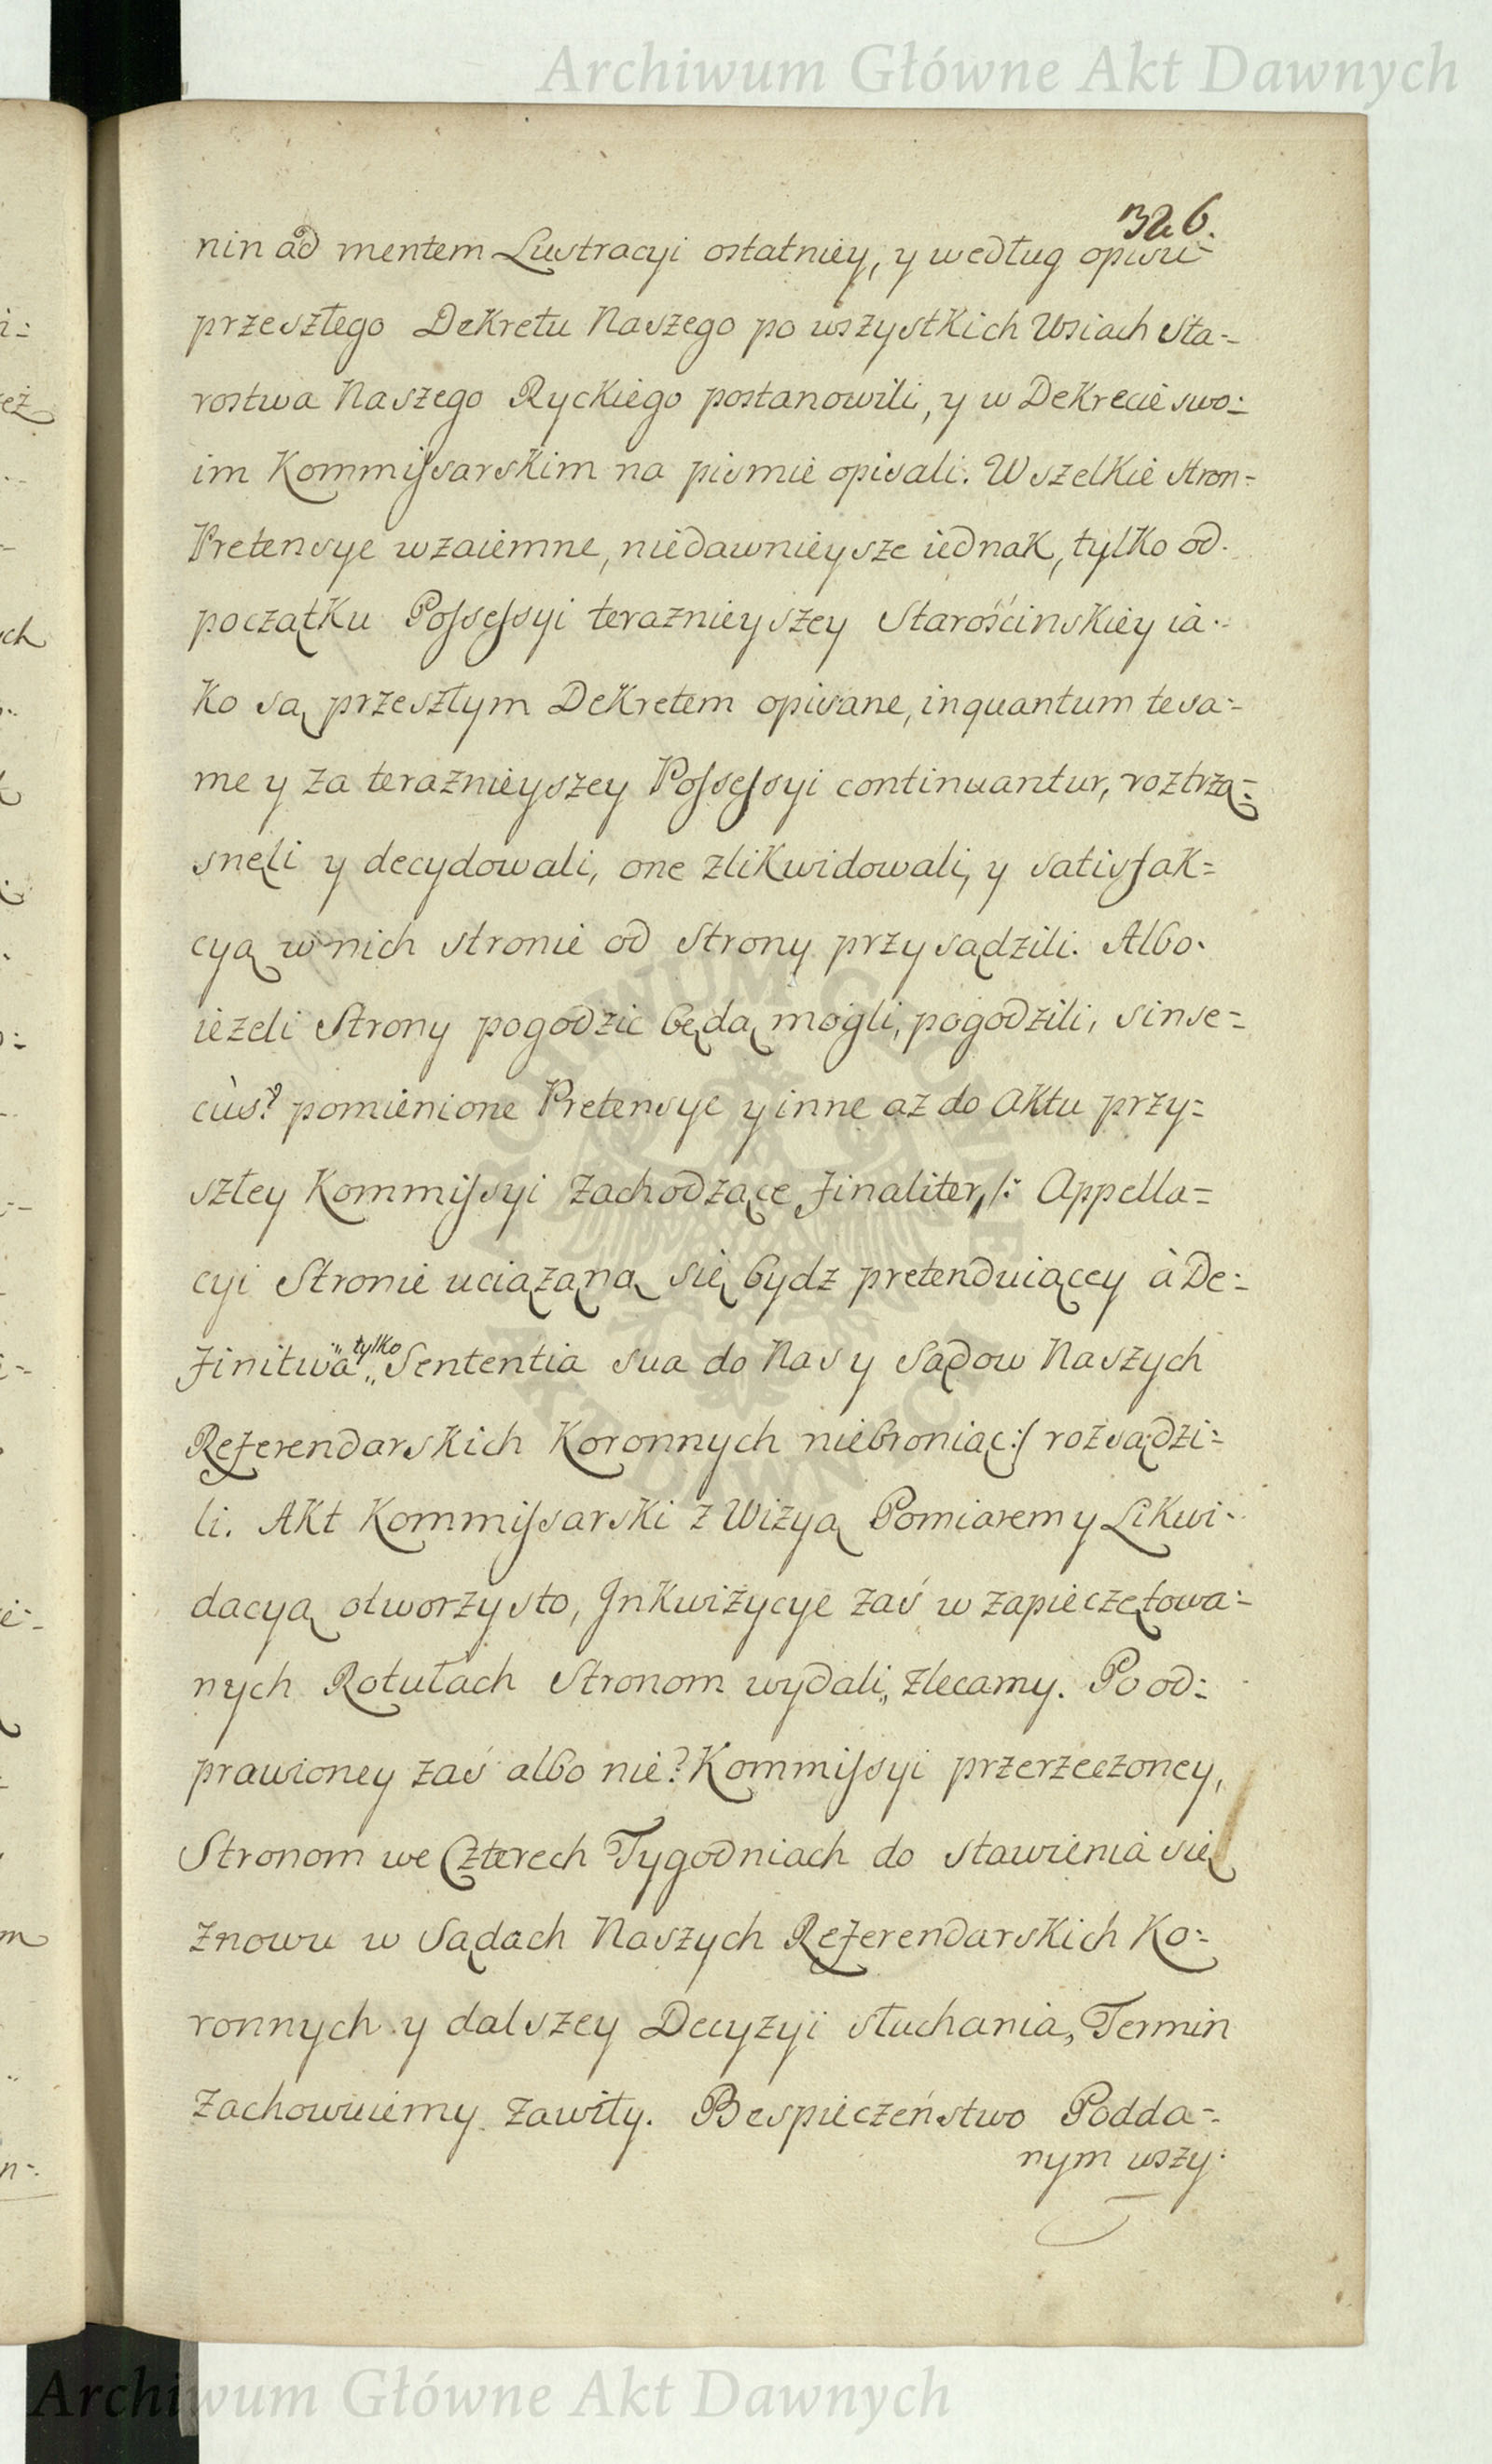 Archiwum Główne Akt Dawnych
326.
nin ad mentem Lustracyi ostatniey, y według opisu
przeszłego Dekretu Naszego po wszystkich Wsiach Sta=
rostwa Naszego Ryckiego postanowili, y w Dekrecie swo=
im Kommissarskim na pismie opisali. Wszelkie stron=
Pretensye wzaiemne, niedawnieysze iednak, tylko od.
początku Possessyi teraznieyszey Starościnskiey ia=
ko są przeszłym Dekretem opisane, inquantum tesa=
me y za teraznieyszey Possessyi continuantur, roztrzą=
sneli y decydowali, one zlikwidowali, y satisfak=
cyą w nich stronie od Strony przysądzili. Albo.
ieżeli Strony pogodzic będą mogli, pogodzili, sinse=
cùs? pomienione Pretensye y inne aż do Aktu przy=
szłey Kommissyi zachodzące finaliter, /: Appella=
cyi Stronie uciązaną się bydz pretenduiącey à De=
finitwa „tylko„ Sententia sua do Nas y Sądow Naszych
Referendarskich Koronnych niebroniąc:/ rozsądzi=
li. Akt Kommissarski z Wizyą Pomiarem y Likwi=
dacyą otworzysto, Inkwizycye zaś w zapieczętowa=
nych Rotułach Stronom wydali„ zlecamy. Po od=
prawioney zaś albo nie? Kommissyi przerzeczoney,
Stronom we Czterech Tygodniach do stawienia się
znowu w Sądach Naszych Referendarskich Ko=
ronnych y dalszey Decyzyi słuchania, Termin
zachowuiemy zawity. Bespieczeństwo Podda=
nym wszy.
Archiwum Główne Akt Dawnych